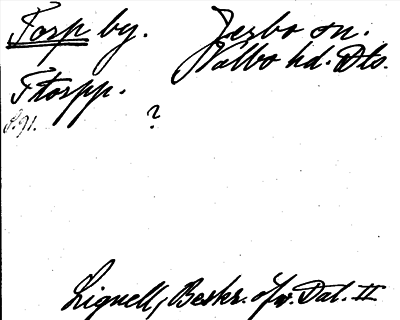 Torp by. Jerbo sn.
Valbo hd. Dls.
Ftorpp.
S. 91. ?
Lignell, Beskr. öfv. Dal. II